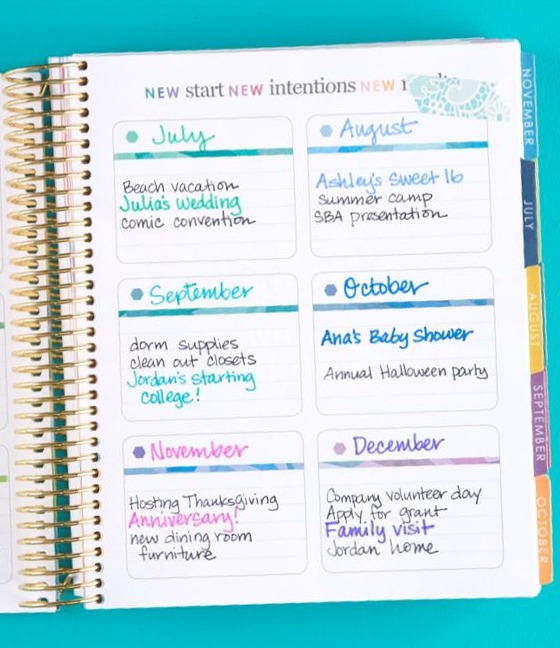 NEW start NEW intentions NEW
July
Beach vacation
Julia's wedding
comic convention
August
Ashley's Sweet 16
summer camp
SBA presentation
September
dorm supplies
clean out closets
Jordan's starting
college!
October
Ana's Baby Shower
Annual Halloween party
November
Hosting Thanksgiving
Anniversary!
new dining room
furniture
December
Company volunteer day
Apply for grant
Family visit
Jordan home
NOVEMBER
JULY
AUGUST
SEPTEMBER
OCTOBER